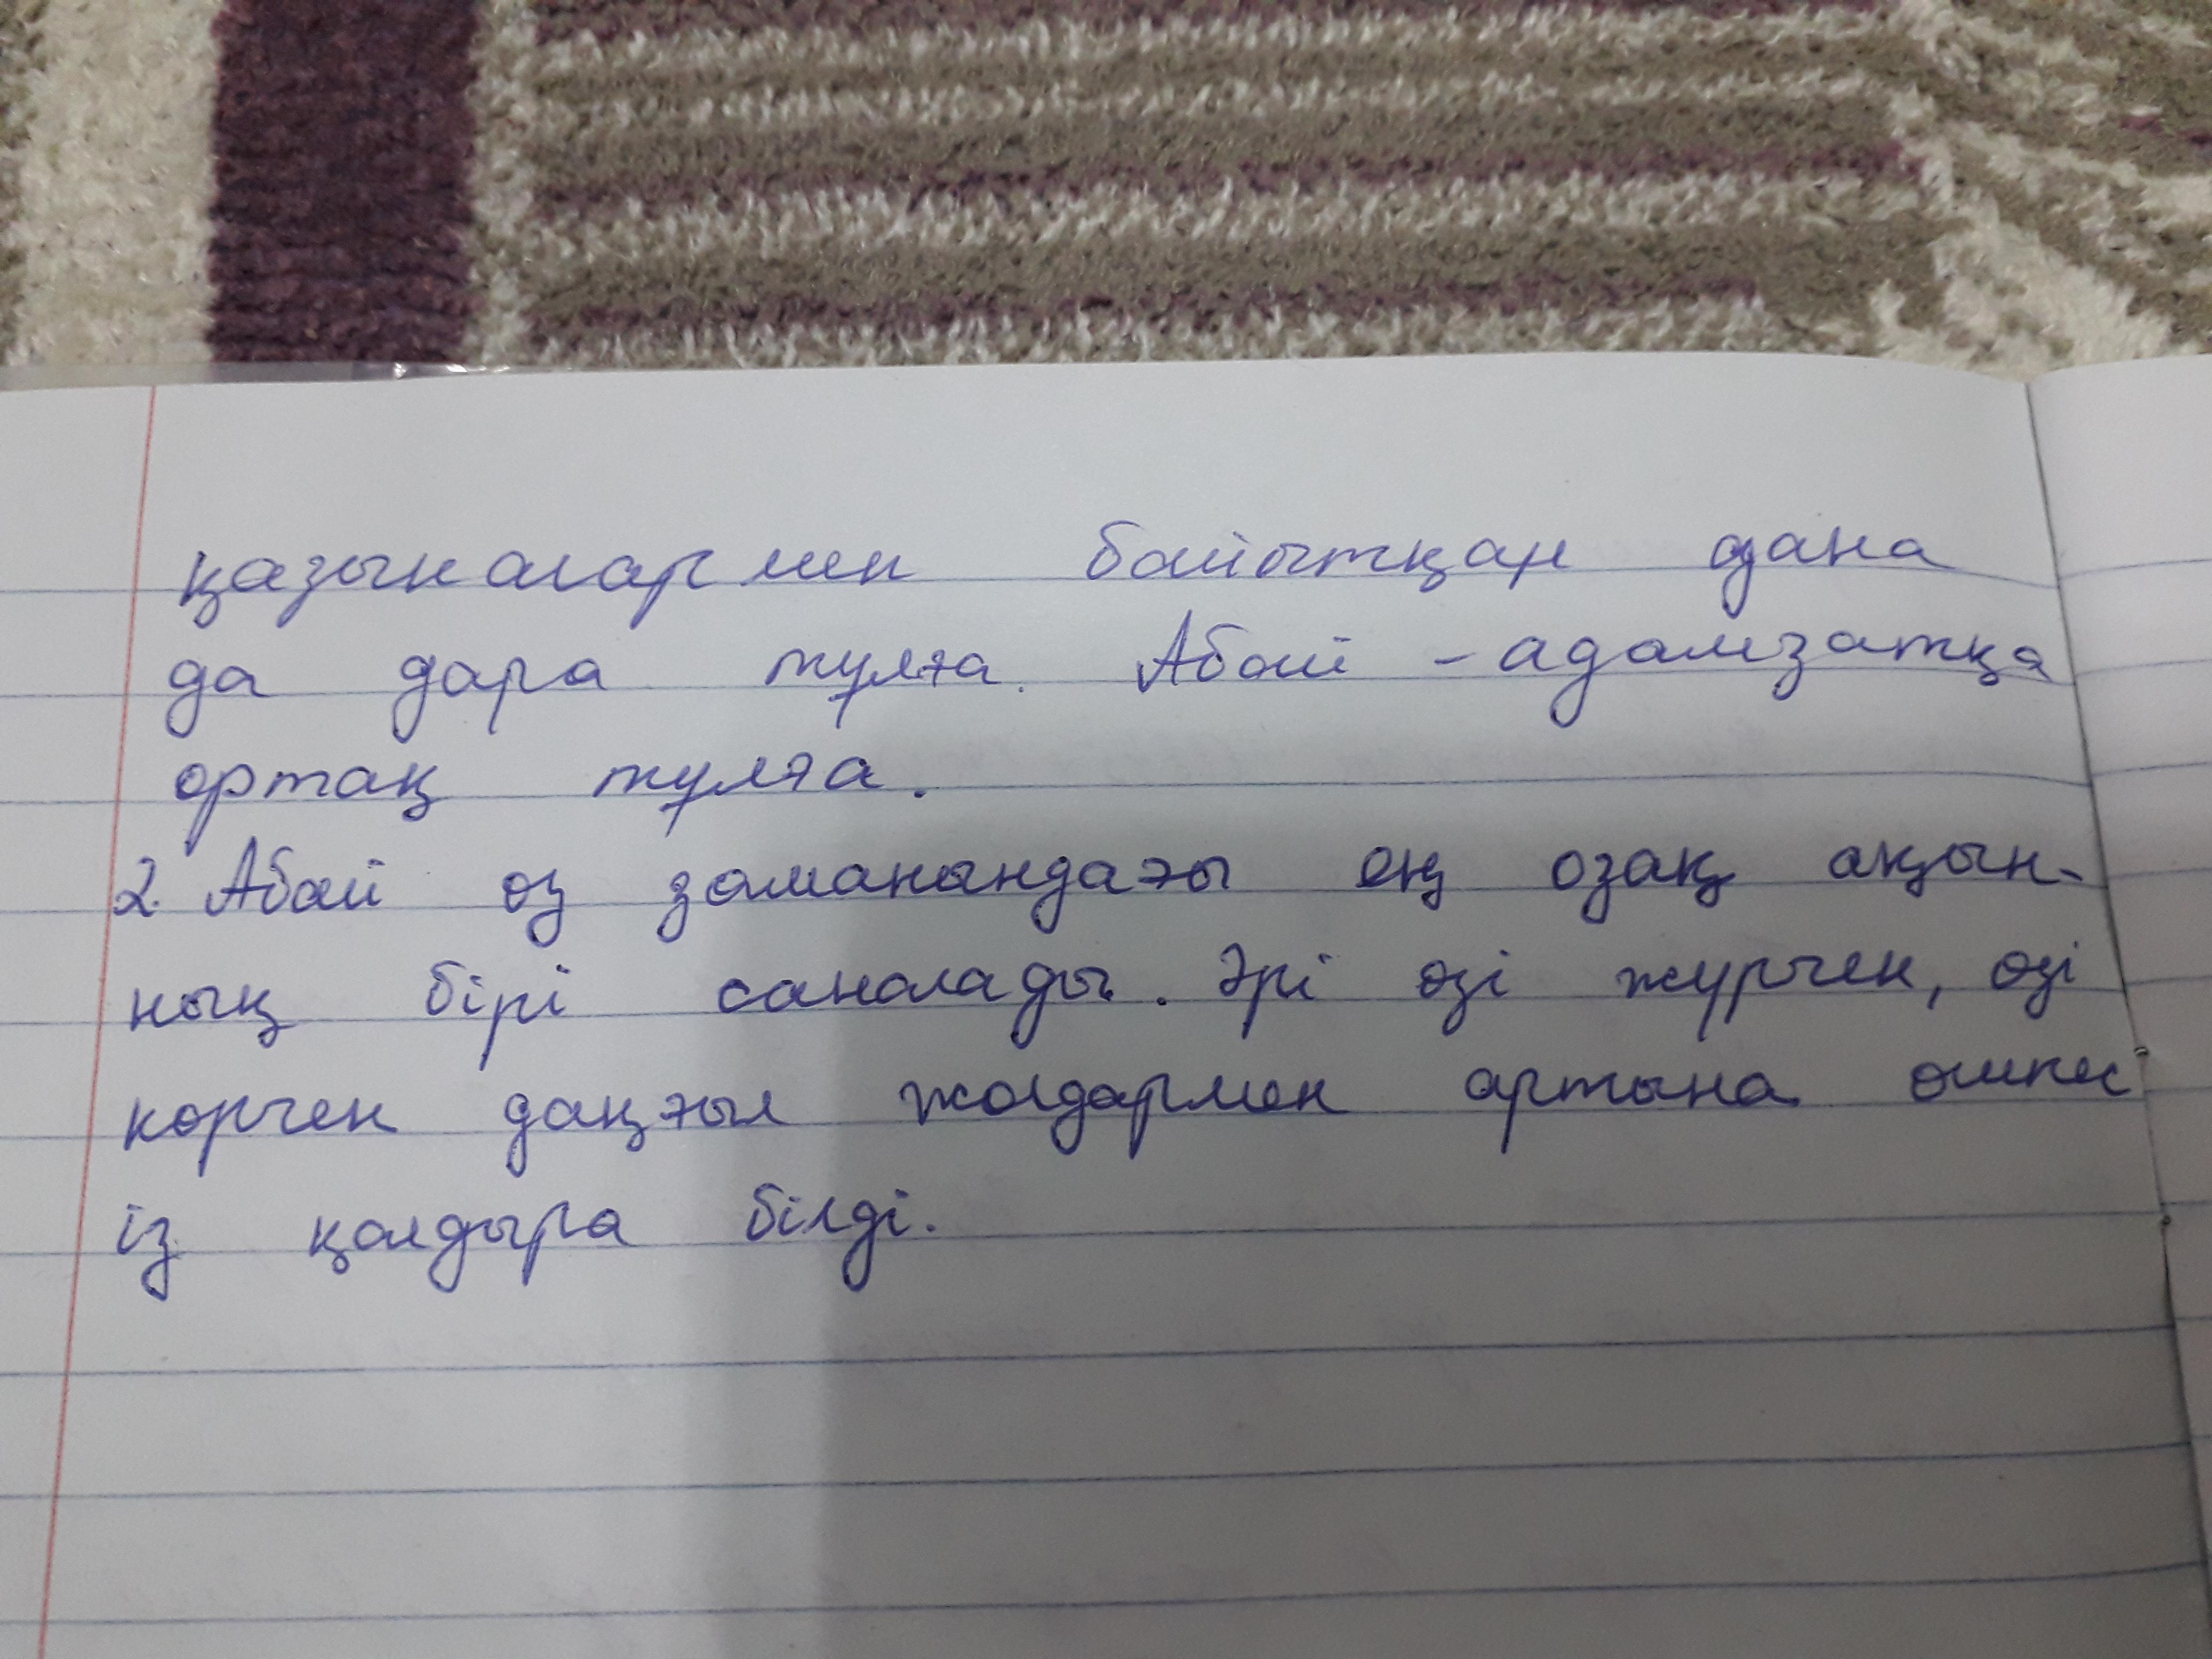 қазыналармен байытқан дана
да дара тұлға. Абай - адамзатқа
ортақ тұлға.
2. Абай өз заманындағы ең озақ ақын-
ның бірі саналады. Әрі өзі жүрген, өзі
көрген даңғыл жолдармен артына өшпес
із қалдыра білді.